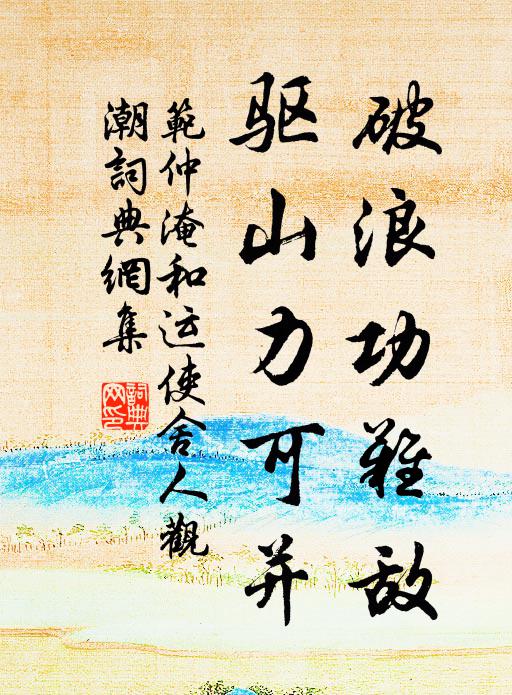 破浪功難敌
驱山力可并
範仲淹和运使舍人觀
潮詞典網集
詞典
网印